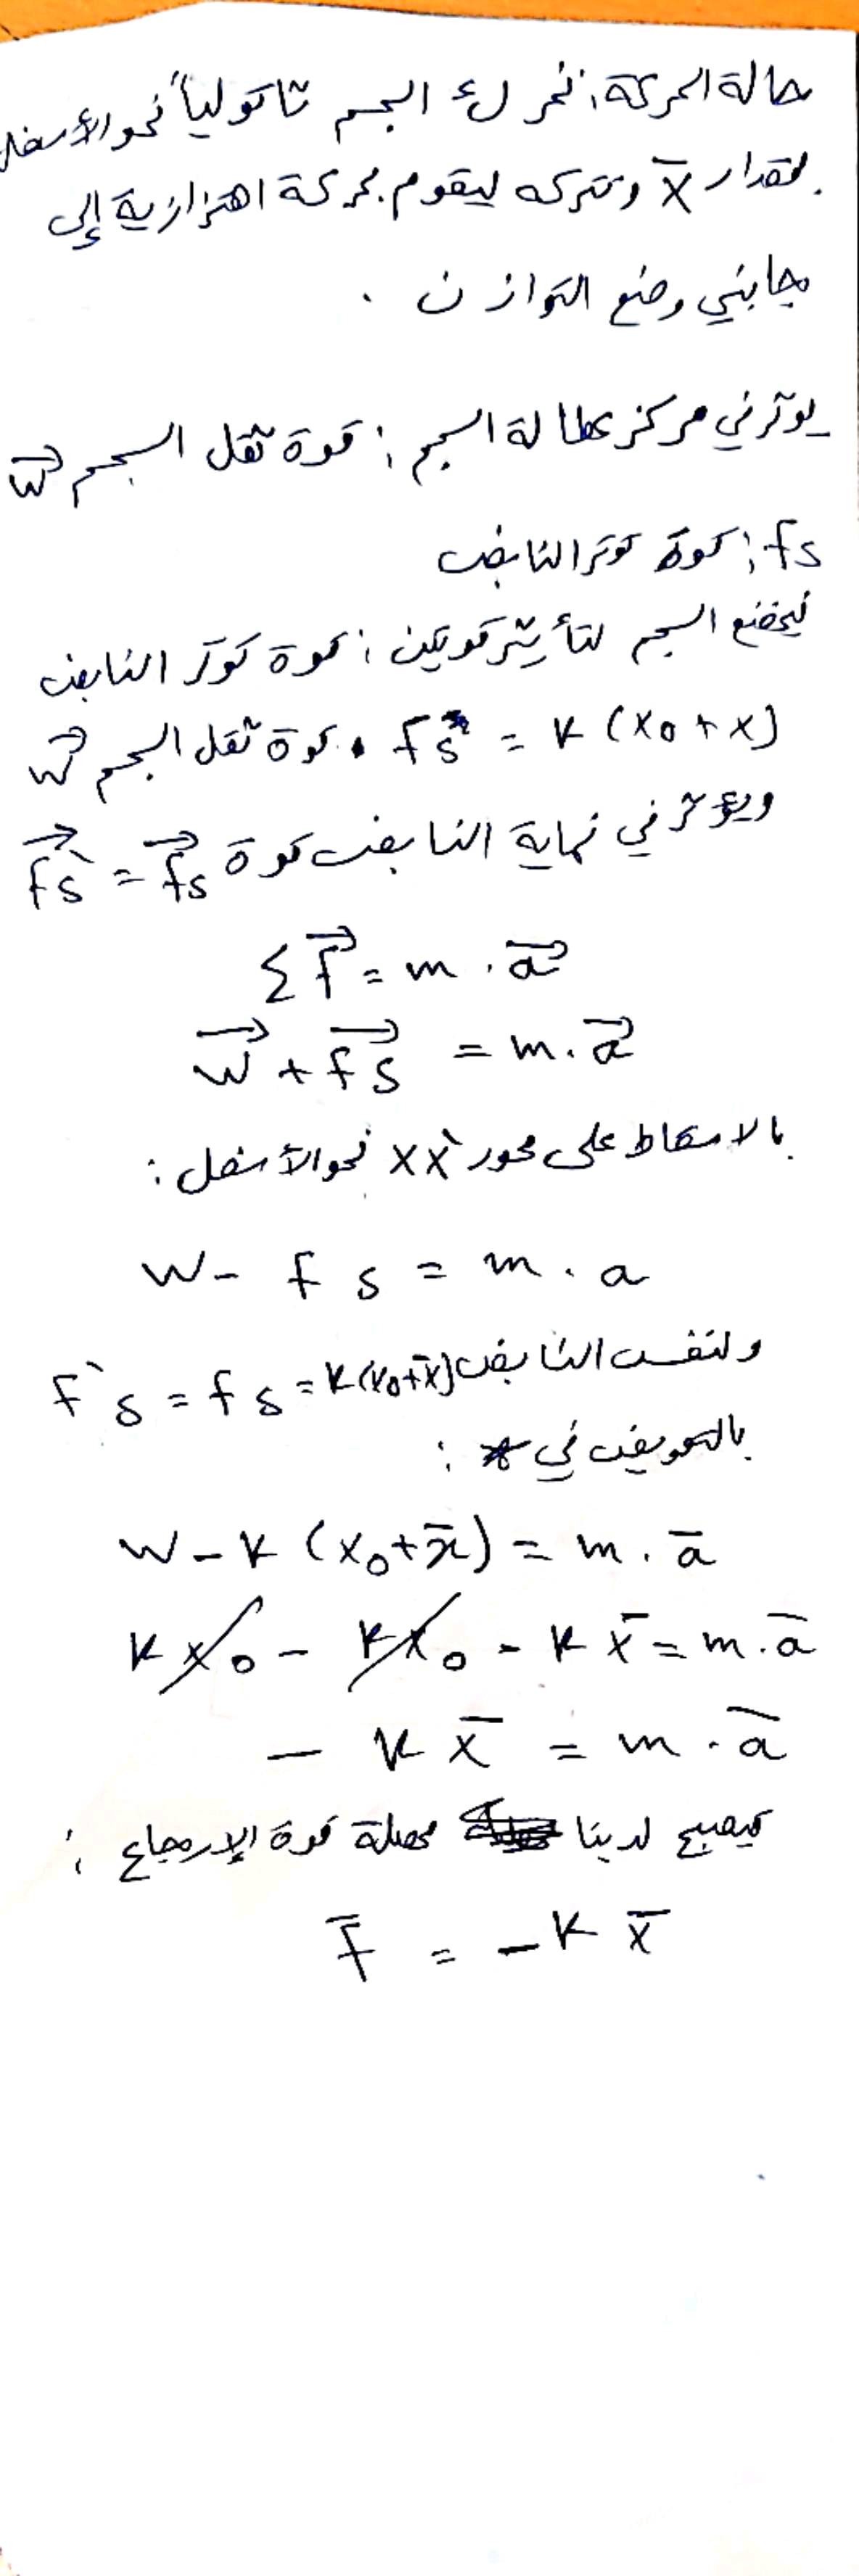 حالة الحركة: نحرك الجسم شاقولياً نحو الأسفل
بمقدار x̄ ونتركه ليقوم بحركة اهتزازية إلى
جانبي وضع التوازن .
يؤثر في مركز عطالة الجسم : قوة ثقل الجسم W⃗
fs : قوة توتر النابض
فيخضع الجسم لتأثير قوتين : قوة توتر النابض
fs = k (x0 + x) . قوة ثقل الجسم W⃗
ويؤثر في نهاية النابض قوة f⃗s` = f⃗s
Σ F⃗ = m . a⃗
W⃗ + f⃗s = m . a⃗
بالاسقاط على محور xx` نحو الأسفل :
W - fs = m . a
ولنفس النابض F`s = fs = k(x0+x̄)
بالتعويض في * :
W - k (x0 + x̄) = m . ā
k x0 - k x0 - k x̄ = m . ā
- k x̄ = m . ā
فيصبح لدينا محصلة قوة الإرجاع :
F̄ = - k x̄